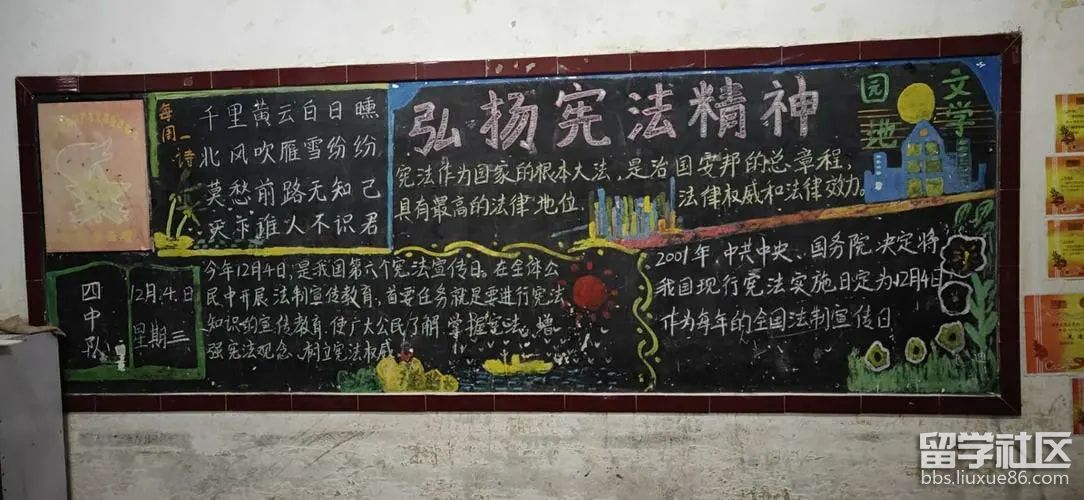 每周一诗
千里黄云白日曛
北风吹雁雪纷纷
莫愁前路无知己
天下谁人不识君
弘扬宪法精神
宪法作为国家的根本大法，是治国安邦的总章程，
具有最高的法律地位、法律权威和法律效力。
文学
园地
四中队
12月.4.日
星期三
今年12月4日，是我国第六个宪法宣传日。在全体公
民中开展法制宣传教育，首要任务就是要进行宪法
知识的宣传教育，使广大公民了解、掌握宪法、增
强宪法观念、树立宪法权威
2001年，中共中央、国务院决定将
我国现行宪法实施日定为12月4日
作为每年的全国法制宣传日
留学社区
bbs.liuxue86.com